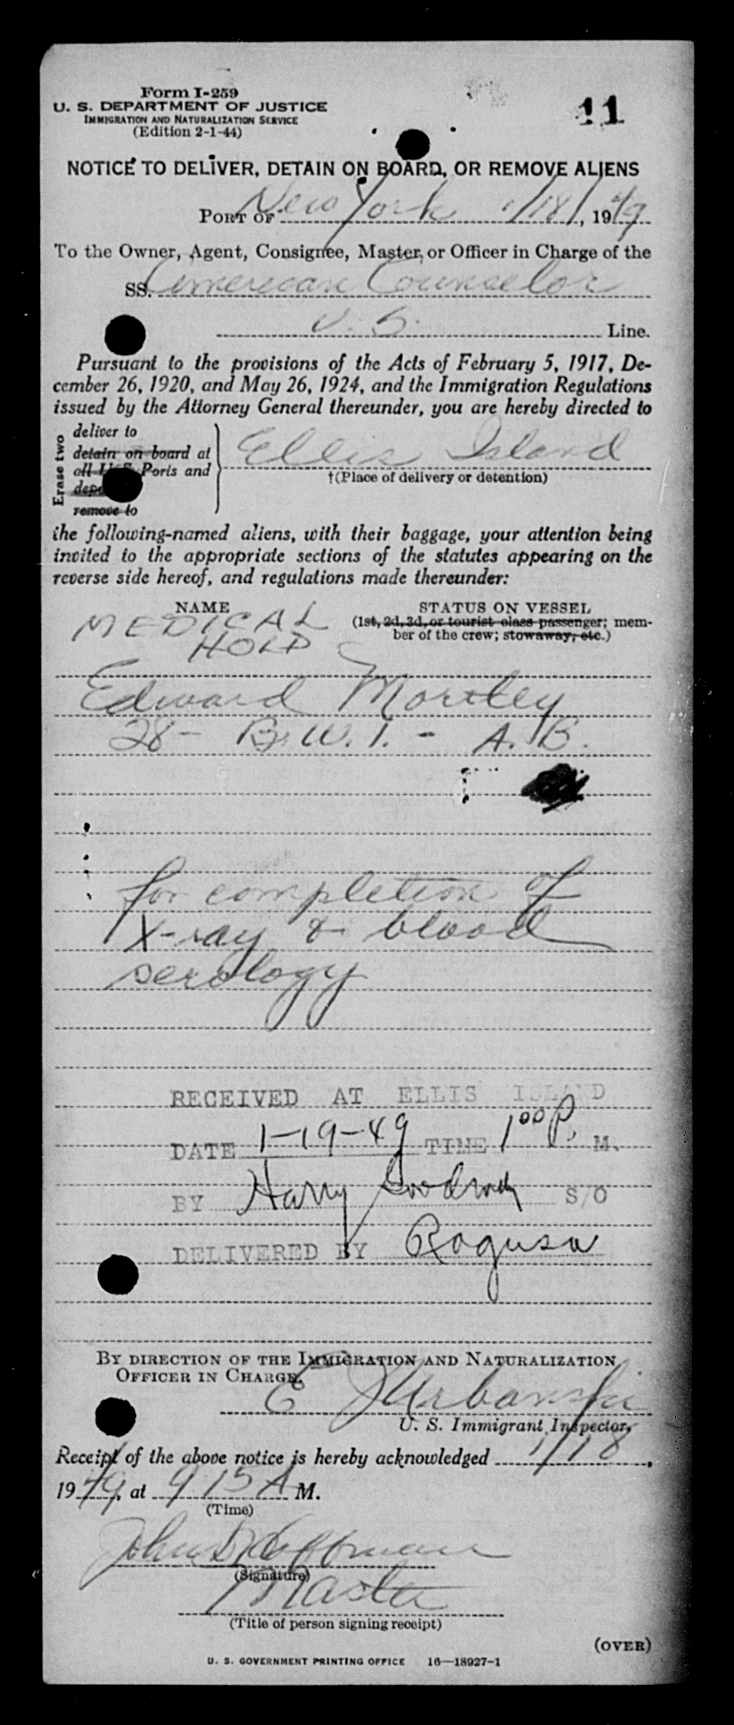 Form I-259
U. S. DEPARTMENT OF JUSTICE
IMMIGRATION AND NATURALIZATION SERVICE
(Edition 2-1-44)
11
NOTICE TO DELIVER, DETAIN ON BOARD, OR REMOVE ALIENS
PORT OF New York 1/18/, 1949
To the Owner, Agent, Consignee, Master, or Officer in Charge of the
SS. American Counselor
U. S. Line.
Pursuant to the provisions of the Acts of February 5, 1917, De-
cember 26, 1920, and May 26, 1924, and the Immigration Regulations
issued by the Attorney General thereunder, you are hereby directed to
Erase two
deliver to
detain on board at
all U. S. Ports and
remove to
Ellis Island
†(Place of delivery or detention)
the following-named aliens, with their baggage, your attention being
invited to the appropriate sections of the statutes appearing on the
reverse side hereof, and regulations made thereunder:
NAME STATUS ON VESSEL
(1st, 2d, 3d, or tourist class passenger; mem-
ber of the crew; stowaway, etc.)
MEDICAL
HOLD
Edward Mortley
28 - B.W.I. - A.B.
for completion of
X-ray & blood
serology
RECEIVED AT ELLIS ISLAND
DATE 1-19-49 TIME 1 00 P. M.
BY Harry S/O
DELIVERED BY Ragusa
BY DIRECTION OF THE IMMIGRATION AND NATURALIZATION
OFFICER IN CHARGE.
E J Urbanski
U. S. Immigrant Inspector.
Receipt of the above notice is hereby acknowledged 1/18,
1949, at 9 15 A M.
(Time)
John Hoffman
(Signature)
Master
(Title of person signing receipt)
(OVER)
U. S. GOVERNMENT PRINTING OFFICE 16—18927-1